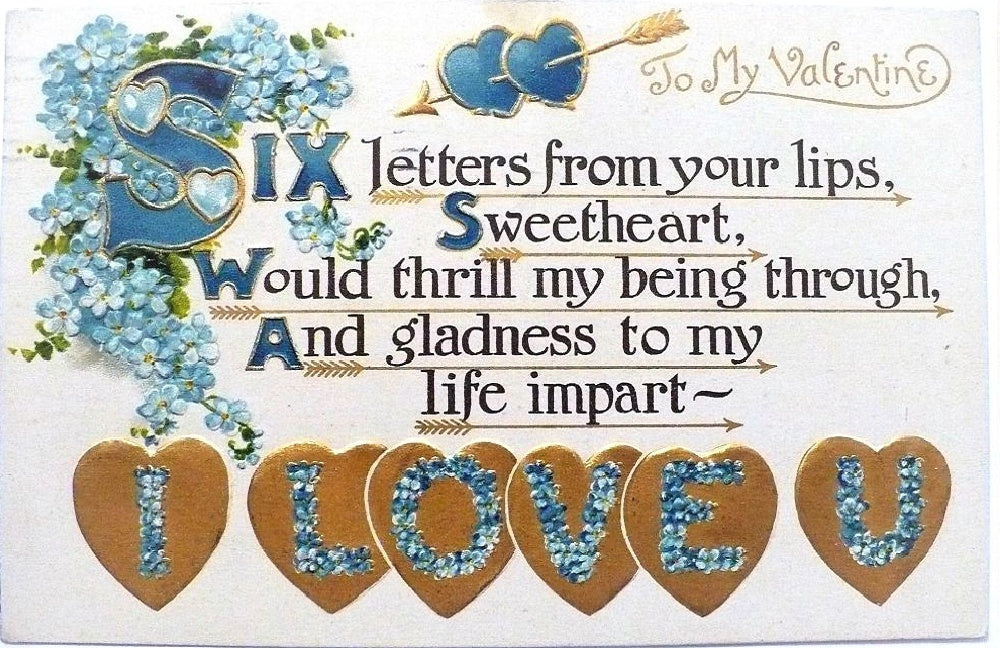 To My Valentine
Six letters from your lips,
Sweetheart,
Would thrill my being through,
And gladness to my
life impart~
I LOVE U